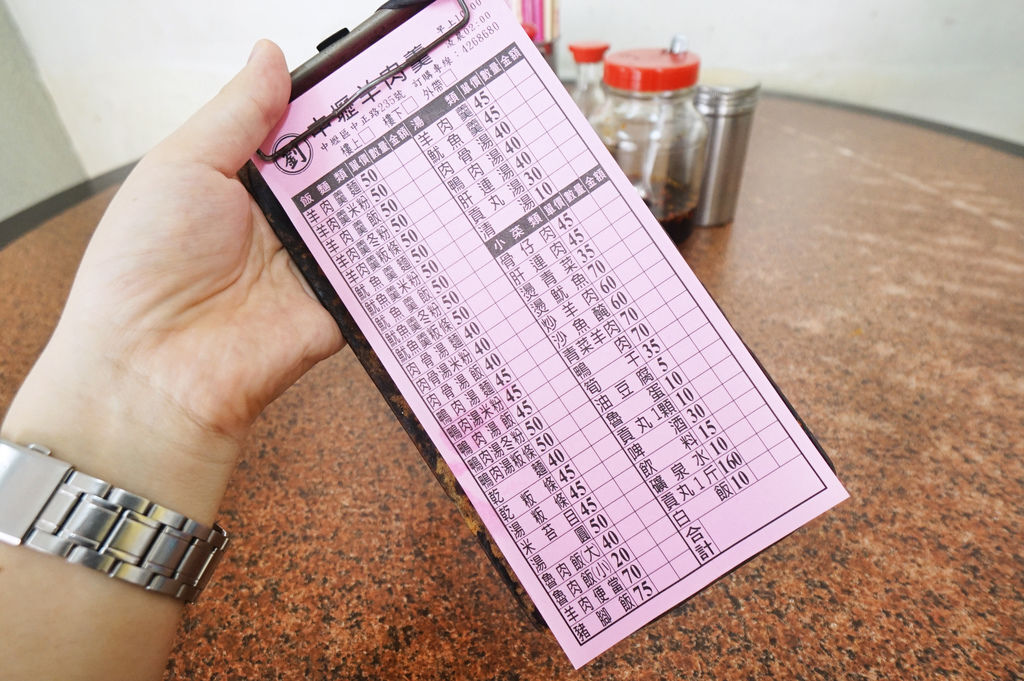 劉 中壢羊肉羹
早上10:00
凌晨02:00
中壢區中正路235號 訂購專線:4268680
樓上 樓下 外帶
飯麵類 單價 數量 金額
羊肉羹麵 50
羊肉羹米粉 50
羊肉羹飯 50
羊肉羹冬粉 50
羊肉羹粄條 50
魷魚羹麵 50
魷魚羹米粉 50
魷魚羹飯 50
魷魚羹冬粉 50
魷魚羹粄條 50
肉骨湯麵 40
肉骨湯米粉 40
肉骨湯飯 40
鴨肉湯麵 45
鴨肉湯米粉 45
鴨肉湯飯 45
鴨肉湯冬粉 50
鴨肉湯粄條 50
乾麵 40
乾粄條 45
湯粄條 45
米苔目 45
湯圓 50
魯肉飯大 40
魯肉飯小 20
羊肉便當 70
豬腳飯 75
湯類 單價 數量 金額
羊肉羹 45
魷魚羹 45
肉骨湯 40
鴨肉湯 40
肝連湯 40
貢丸湯 30
清湯 10
小菜類 單價 數量 金額
骨仔肉 45
肝連肉 45
燙青菜 35
燙魷魚 70
炒羊肉 60
沙魚醃 60
青菜羊肉 70
鴨肉 70
筍干 35
油豆腐 5
魯蛋 10
貢丸1顆 10
啤酒 30
飲料 15
礦泉水 10
貢丸1斤 160
白飯 10
合計